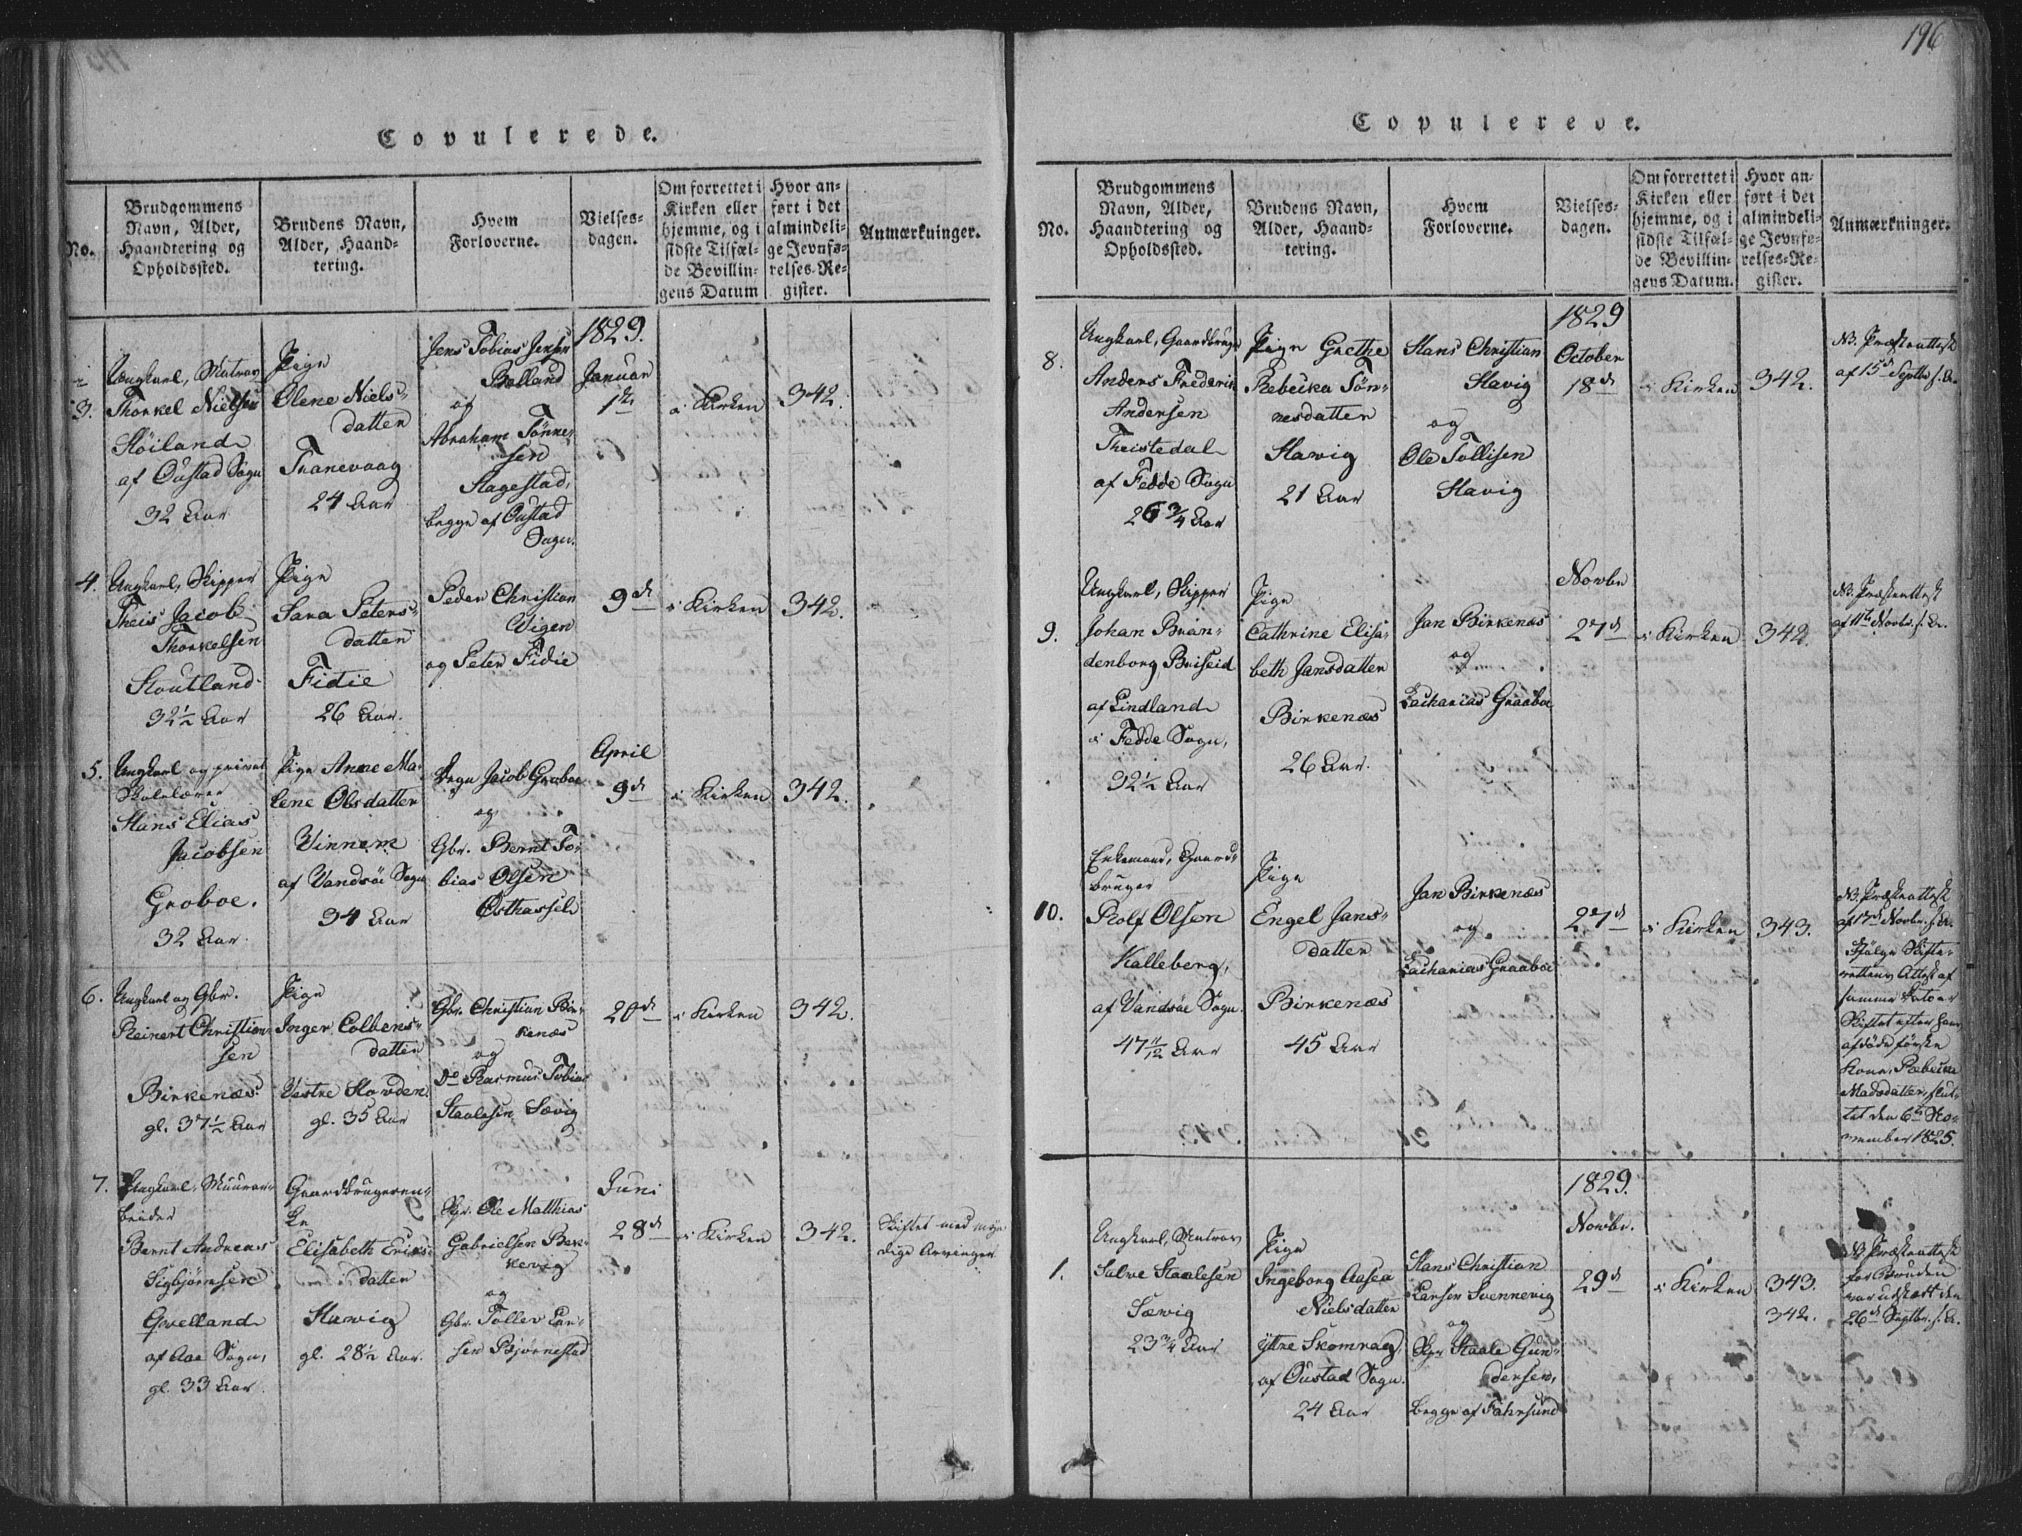 196
Copulerede.
No.
Brudgommens
Navn, Alder,
Haandtering og
Opholdssted.
Brudens Navn,
Alder, Haand-
tering.
Hvem
Forloverne.
Vielses-
dagen.
Om forrettet i
Kirken eller
hjemme, og i
sidste Tilfæl-
de Bevillin-
gens Datum
Hvor an-
ført i det
almindeli-
ge Jevnfø-
relses-Re-
gister.
Anmærkninger.
3.
Ungkarl, Matros
Thorkel Nielsen
Høiland
af Oustad Sogn
32 Aar
Pige
Olene Niels-
datter
Tranevaag
24 Aar
Jens Tobias Jensen
Bolland
og
Abraham Tønne-
sen
Hagestad,
begge af Oustad
Sogn.
1829.
Januar
1te
i Kirken
342.
4.
Ungkarl, Skipper
Theis Jacob
Thorkelsen
Stoutland
32½ Aar
Pige
Sara Peters-
datter
Fidie
26 Aar.
Peder Christian
Vigen
og Peter Fidie
9de
i Kirken
342.
5.
Ungkarl og privat
Skolelærer
Hans Elias
Jacobsen
Groboe.
32 Aar.
Pige Anne Ma-
lene Olsdatter
Vinnem
af Vandsøe Sogn
34 Aar
Degn Jacob Groboe
og
Gbr. Bernt To-
bias Olsen
Østhassel
April
9de
i Kirken
342.
6.
Ungkarl og Gbr.
Reinert Christian-
sen
Birkenæs.
gl. 37½ Aar
Pige
Inger Colbens-
datter
Vestre Hovden.
gl. 35 Aar
Gbr. Christian Bir-
kenæs
og
Do Rasmus Tobias
Staalesen Sævig
20de
i Kirken
342.
7.
Ungkarl, Muurar-
beider
Bernt Andreas
Sigbjørnsen
Qvelland
af Aae Sogn,
gl. 33 Aar.
Gaardbrugeren-
ke
Elisabeth Erics-
datter
Hawig
gl. 28½ Aar.
Gbr. Ole Matthias
Gabrielsen Bek-
kevig
og
Gbr. Tollev Lar-
sen Bjørnestad
Juni
28de
i Kirken
342.
Skiftet med myn-
dige Arvinger
Copulerede.
No.
Brudgommens
Navn, Alder,
Haandtering og
Opholdssted.
Brudens Navn,
Alder, Haand-
tering.
Hvem
Forloverne.
Vielses-
dagen.
Om forrettet i
Kirken eller
hjemme, og i
sidste Tilfæl-
de Bevillin-
gens Datum.
Hvor an-
ført i det
almindeli-
ge Jevnfø-
relses-Re-
gister.
Anmærkninger.
8.
Ungkarl, Gaardbruger
Anders Frederik
Andersen
Theistedal
af Fedde Sogn
26¾ Aar
Pige Grethe
Rebecka Tøn-
nesdatter
Hawig
21 Aar
Hans Christian
Havig
og
Ole Tollisen
Havig
1829
October
18de
i Kirken
342.
NB. Præsteattest
af 15de Septbr. s. A.
9.
Ungkarl, Skipper
Johan Bran-
denborg Briseid
af Lindland
i Fedde Sogn,
32½ Aar
Pige
Cathrine Elisa-
beth Jansdatter
Birkenæs
26 Aar.
Jan Birkenæs
og
Zacharias Graaboe
Novbr
27de
i Kirken
342.
NB. Præsteattest
af 11te Novbr. s. A.
10.
Enkemand, Gaard-
bruger
Rolf Olsen
Kalleberg,
af Vandsøe Sogn.
47 11/12 Aar
Pige
Engel Jans-
datter
Birkenæs
45 Aar
Jan Birkenæs
og
Zacharias Graaboe
27de
i Kirken
343.
NB. Præsteattest
af 17de Novbr. s. A.
Ifølge Skifte-
rettens Attest af
samme Dato er
Skiftet efter hans
afdøde første
Kone, Rebecka
Madsdatter, slut-
tet den 6te No-
vember 1825.
1.
Ungkarl, Matros
Salve Staalesen
Sævig
23¾ Aar
Pige
Ingeborg Aasea
Nielsdatter
ytre Skomrag,
af Oustad Sogn.
24 Aar
Hans Christian
Larsen Svennevig
og
Skpr Staale Gun-
dersen,
begge af Fahrsund
1829.
Novbr.
29de
i Kirken
343.
342.
NB. Præsteattest
for Bruden
var udstædt den
26de Septbr. s. A.